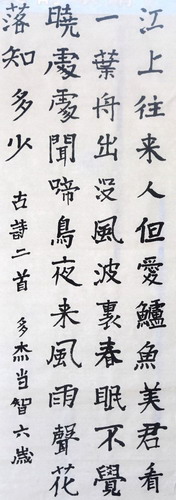 江上往来人但愛鱸魚美君看
一葉舟出没風波裏春眠不覺
曉處處聞啼鳥夜来風雨聲花
落知多少 古詩二首 多杰当智六歲